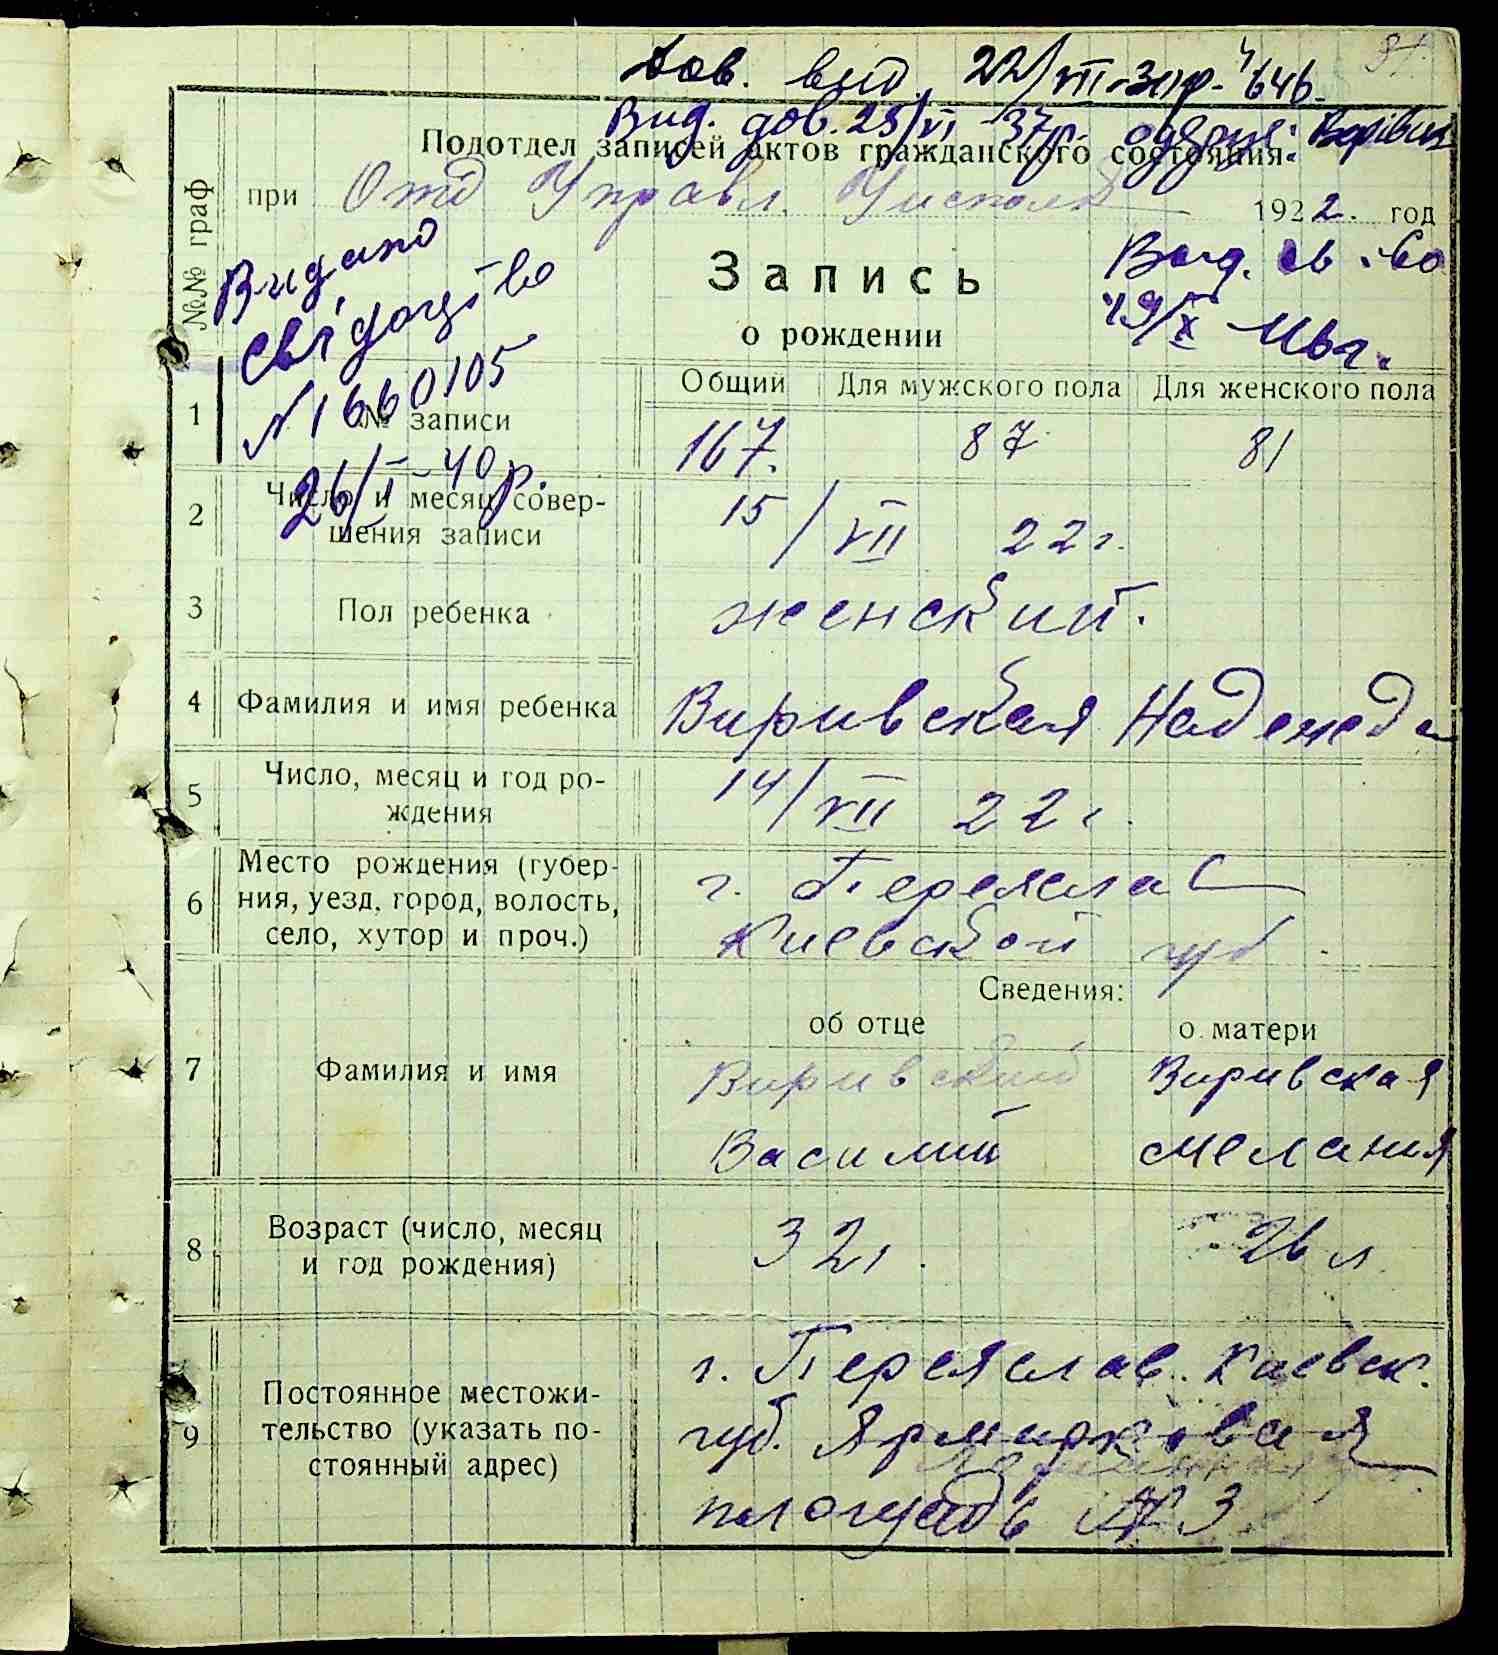 81.
Дов. вид. 22/VII-31р. ч 646.
Вид. дов. 25/VI-37р.
Подотдел записей актов гражданского состояния.
при Отд Управл. Исполк 1922. год
№№ граф
Видано
свідоцтво
N 1660105
26/I-40р.
Запись
о рождении
Выд. св-во
19/X
Общий Для мужского пола Для женского пола
1 № записи 167. 87 81
2 Число и месяц совер-
шения записи 15/VII 22 г.
3 Пол ребенка женский.
4 Фамилия и имя ребенка Виривская Надежда
5 Число, месяц и год ро-
ждения 14/VII 22 г.
6 Место рождения (губер-
ния, уезд, город, волость,
село, хутор и проч.) г. Переяслав
Киевской губ.
Сведения:
об отце о матери
7 Фамилия и имя Виривский Виривская
Василий Мелания
8 Возраст (число, месяц
и год рождения) 32 г. 26 л
9 Постоянное местожи-
тельство (указать по-
стоянный адрес) г. Переяслав. Киевск.
губ. Ярмарковая
площадь № 3